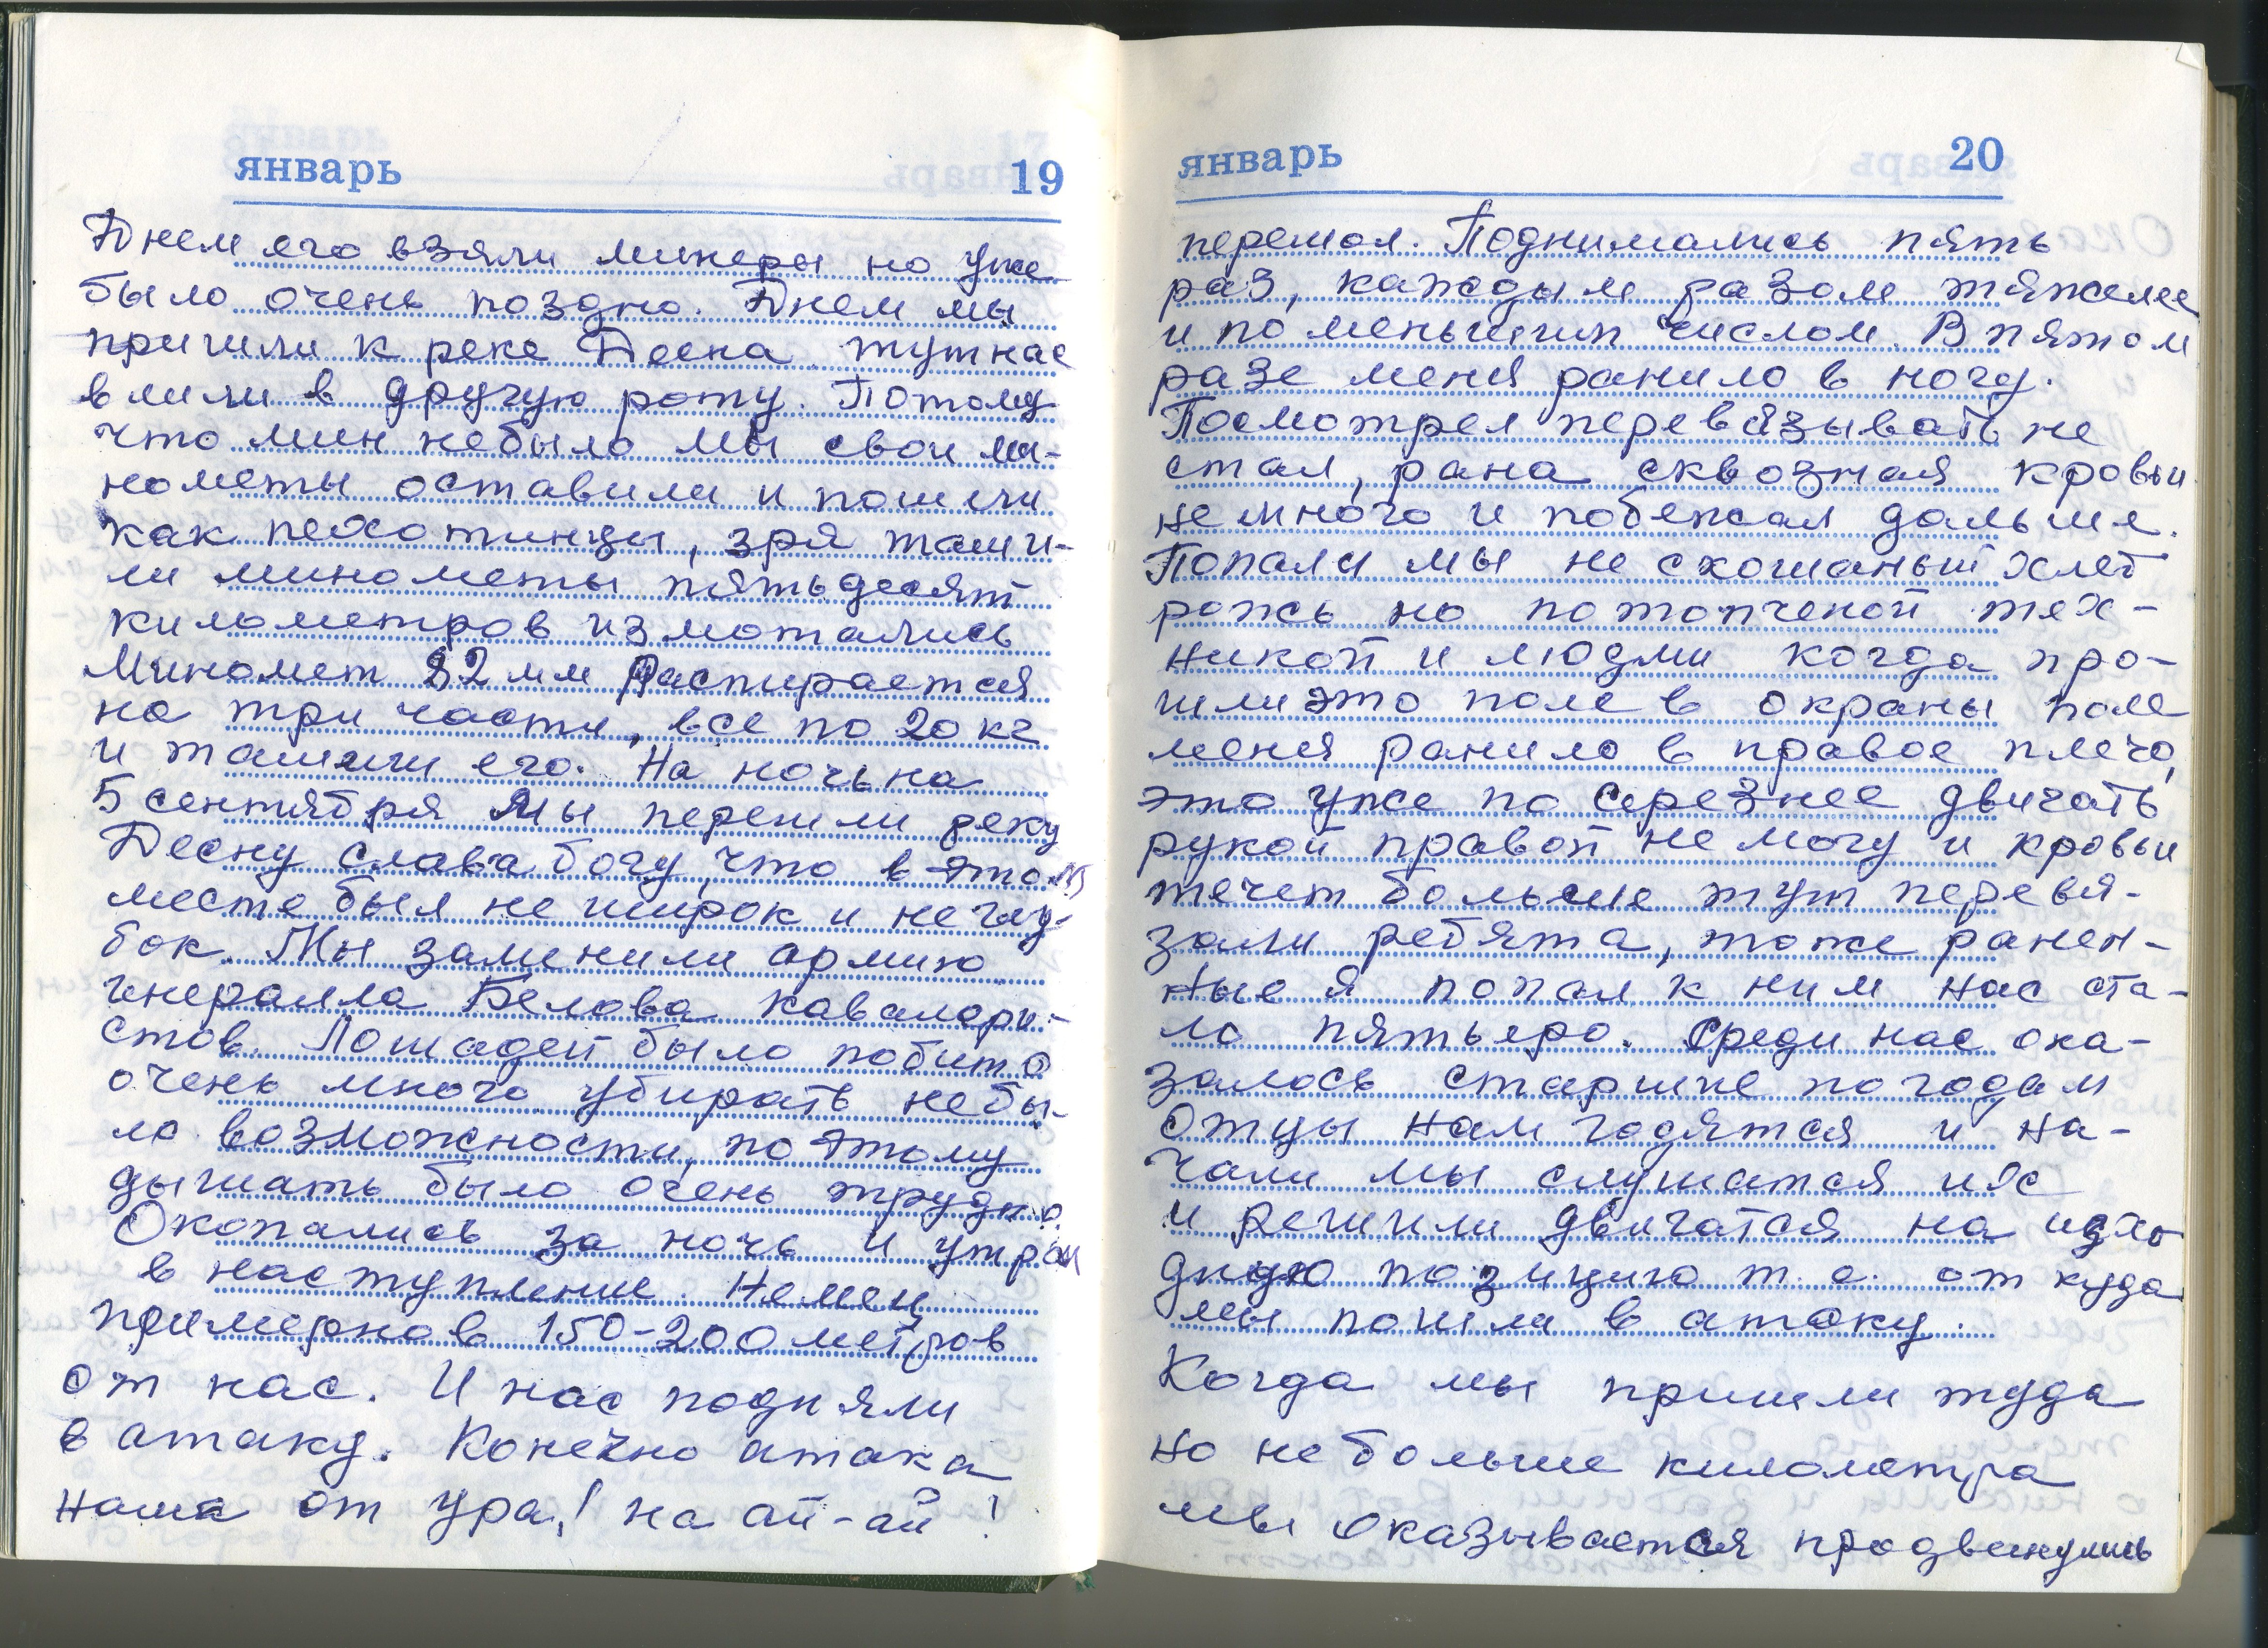 январь 19
Днем его взяли минеры но уже
было очень поздно. Днем мы
пришли к реке Десна тут нас
влили в другую роту. Потому
что мин небыло мы свои ми-
нометы оставили и пошли
как пехотинцы, зря тащи-
ли минометы пятьдесят
километров измотались
Миномет 82 мм Распирается
на три части, все по 20 кг
и тащили его. На ночь на
5 сентября Мы перешли реку
Десну слава богу, что в этом
месте был не широк и не глу-
бок. Мы заменили армию
генералла Белова кавалери-
стов. Лошадей было побито
очень много убирать небы-
ло возможности, по этому
дышать было очень трудно.
Окопались за ночь и утром
в наступление. Немец
примерно в 150-200 метров
от нас. И нас подняли
в атаку. Конечно атака
наша от ура! на ай-ай!
январь 20
перешол. Поднимались пять
раз, каждым разом тяжелее
и по меньшим числом. В пятом
разе меня ранило в ногу.
Посмотрел перевязывать не
стал, рана сквозная кровьи
немного и побежал дальше.
Попали мы не скошаный хлеб
рожь но потопченой тех-
никой и людми когда про-
шли это поле в окраны поле
меня ранило в правое плечо,
это уже по серезнее двигать
рукой правой не могу и кровьи
течет больше тут перевя-
зали ребята, тоже ранен-
ные я попал к ним нас ста-
ло пятьеро. Среди нас ока-
залось старшие по годам
Отцы нам годятся и на-
чали мы слушатся их
и решили двигатся на исхо
дную позицию т.е. от куда
мы пошли в атаку.
Когда мы пришли туда
но не больше километра
мы оказывается продвинулись